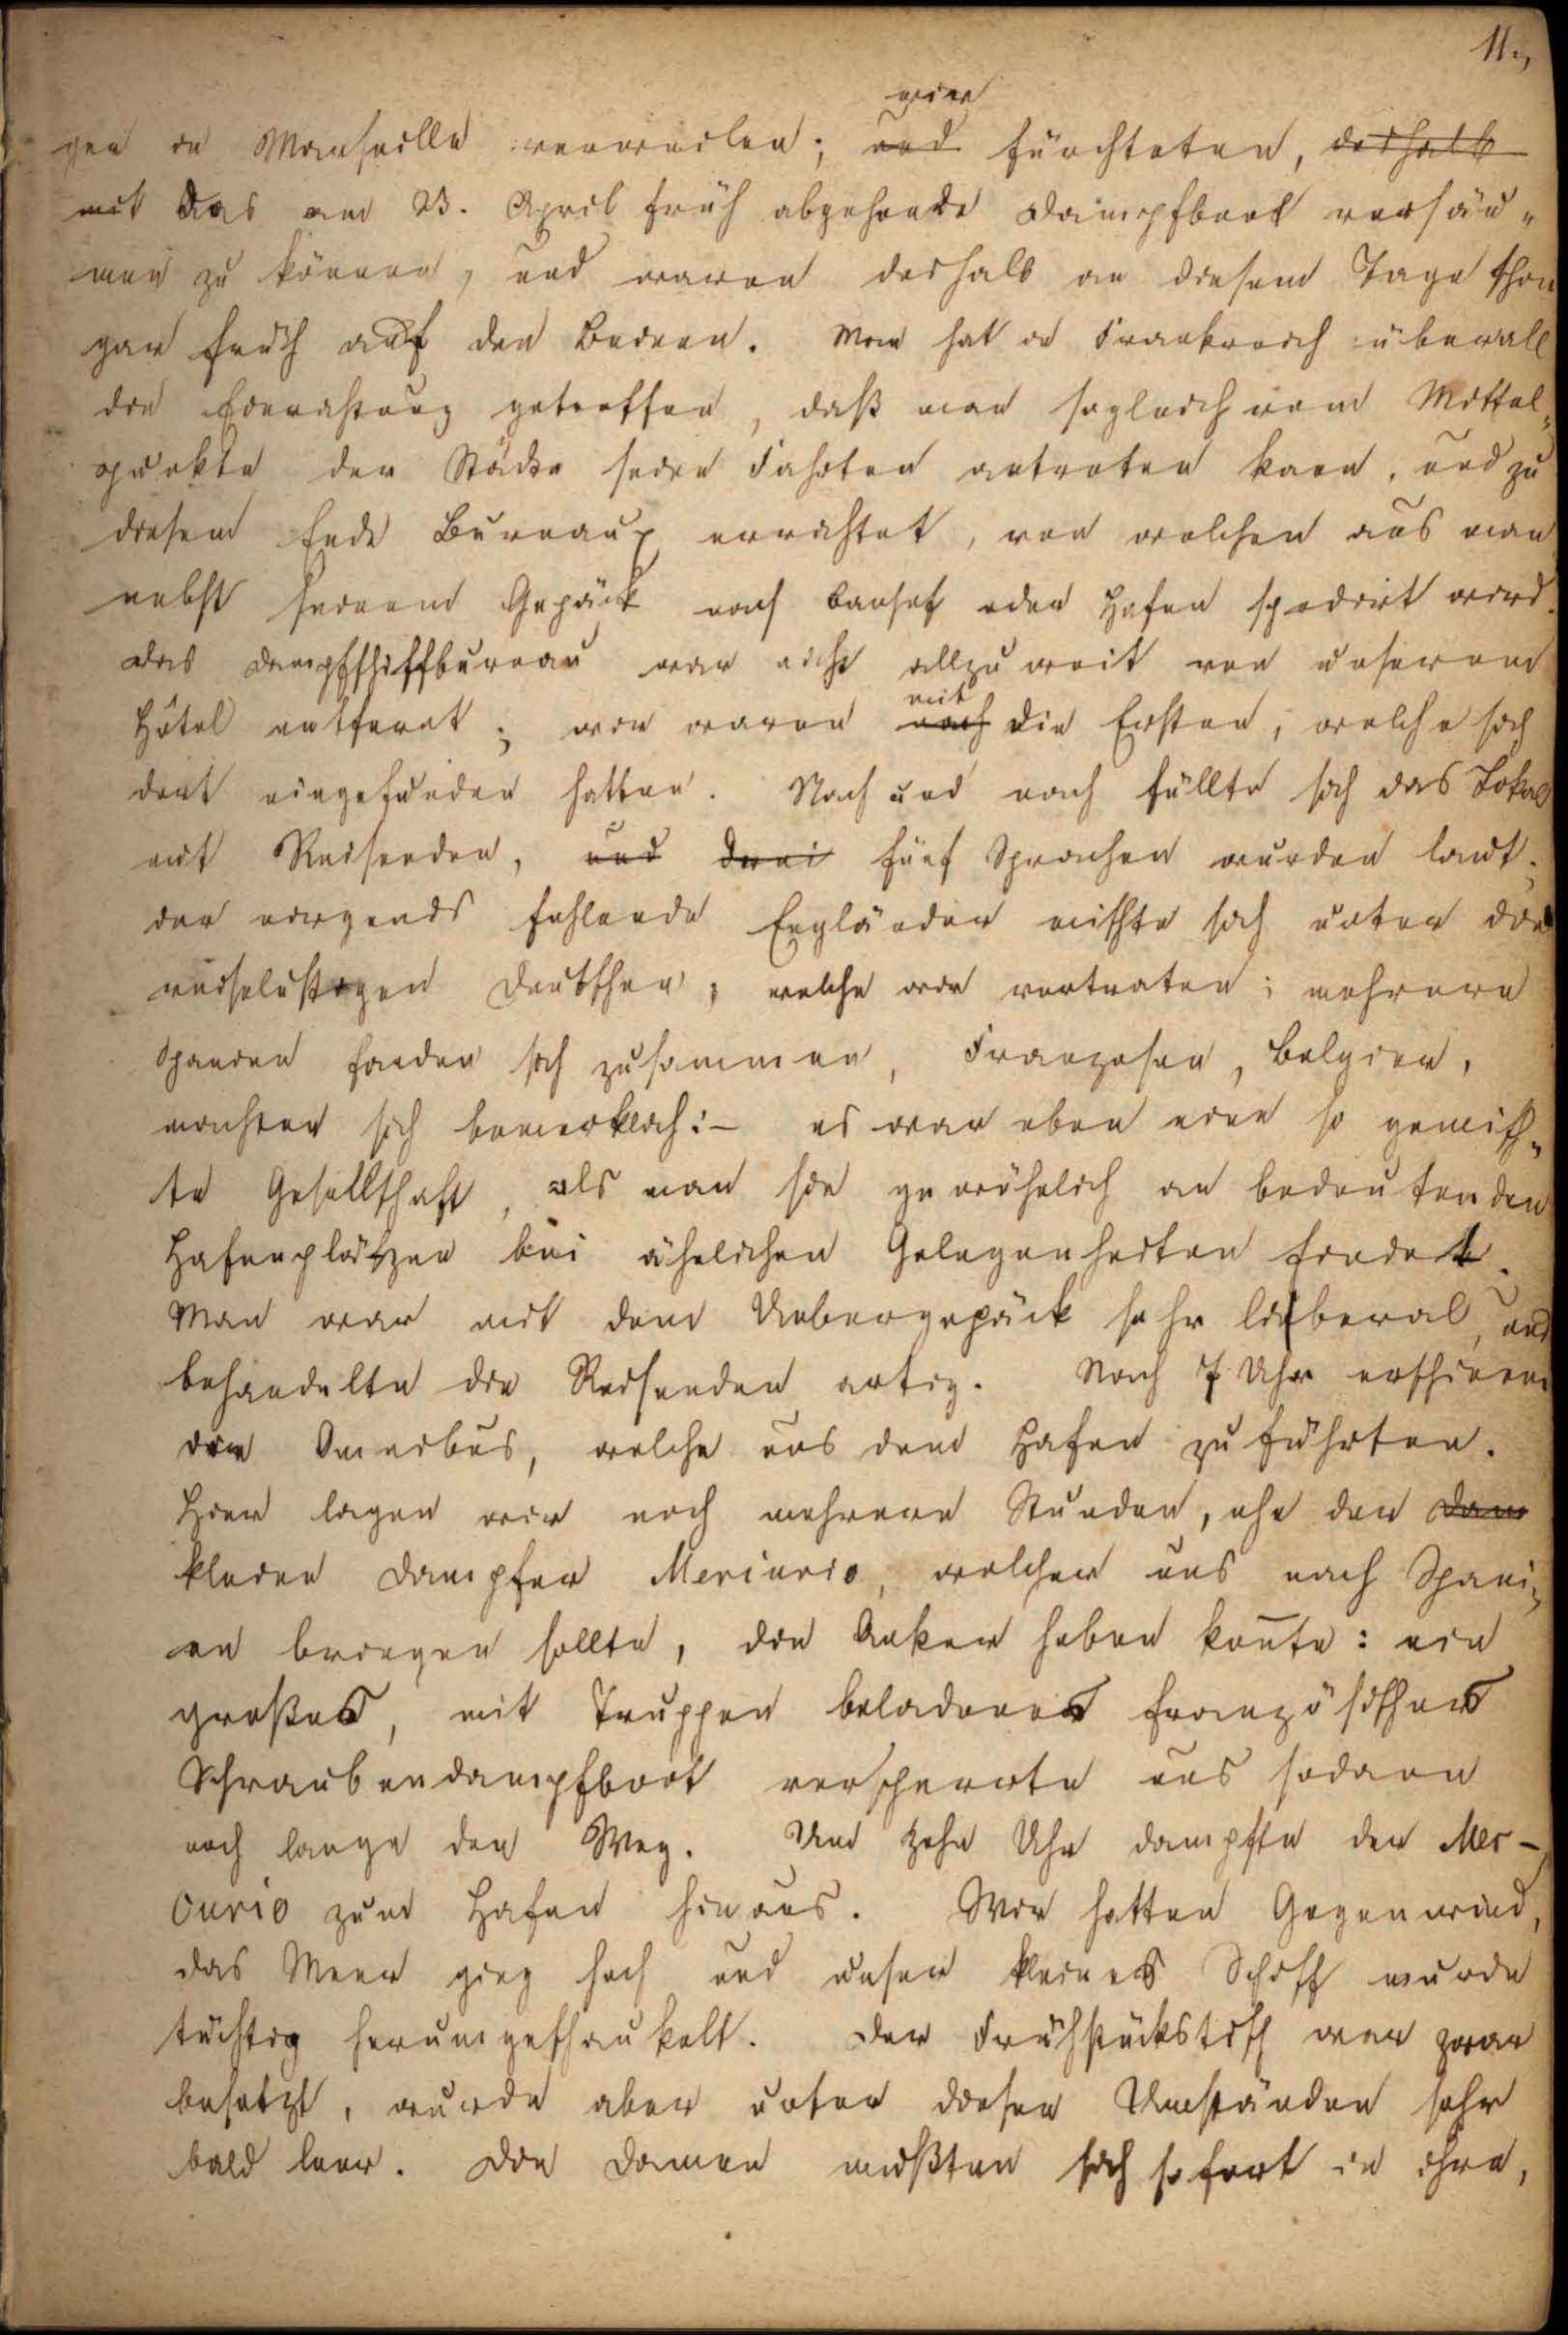 11.,
wir
gen in Marseille verweilen; und fürchteten, deshalb
mit das am 23. April früh abgehende Dampfboot versäu-
men zu können, und waren deshalb an diesem Tage schon
gar früh auf den Beinen. Man hat in Frankreich überall
die Einrichtung getroffen, daß man sogleich vom Mittel-
punkte der Städte seine Fahrten antreten kann, und zu
diesem Ende Bureaux errichtet, von welchen aus man
nebst seinem Gepäck nach Bahnhof oder Hafen spedirt wird.
Das Dampfschiffbureau war nicht allzu weit von unserem
mit
Hôtel entfernt; wir waren noch die Ersten, welche sich
dort eingefunden hatten. Nach und nach füllte sich das Lokal
mit Reisenden, und drei fünf Sprachen wurden laut.
der nirgends fehlende Engländer mischte sich unter die
reiselustigen Deutschen, welche wir vertraten; mehrere
Spanier fanden sich zusammen, Franzosen, Belgier,
machten sich bemerklich:– es war eben eine so gemisch-
te Gesellschaft, als man sie gewöhnlich an bedeutenden
Hafenplätzen bei ähnlichen Gelegenheiten findet.
Man war mit dem Uebergepäck sehr liberal, und
behandelte die Reisenden artig. Nach 7 Uhr erschienen
die Omnibus, welche uns dem Hafen zuführten.
Hier lagen wir noch mehrere Stunden, ehe der Dam
kleine Dampfer Mercurio, welcher uns nach Spani-
en bringen sollte, die Anker heben konnte: ein
großes, mit Truppen beladenes französisches
Schraubendampfboot versperrte uns sodann
noch lange den Weg. Um zehn Uhr dampfte der Mer-
curio zum Hafen hinaus. Wir hatten Gegenwind,
das Meer ging hoch und unser kleines Schiff wurde
tüchtig herumgeschaukelt. Der Frühstückstisch war zwar
besetzt, wurde aber unter diesen Umständen sehr
bald leer. Die Damen mußten sich sofort in ihre,